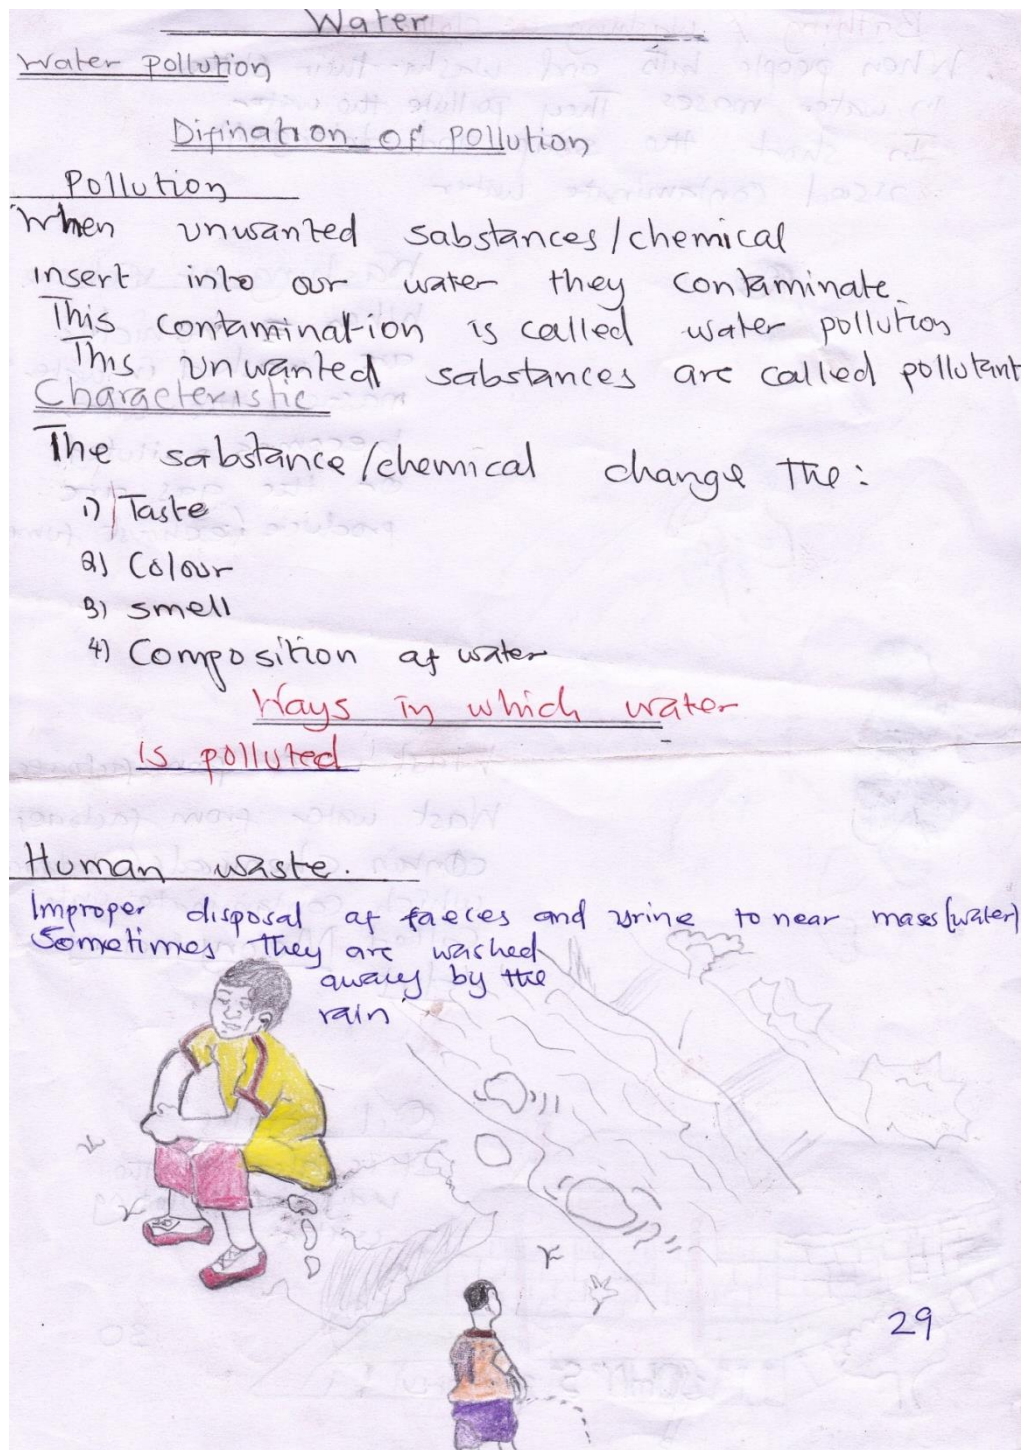 Water
Water pollution
Difination of pollution
Pollution
When unwanted sabstances/chemical
insert into our water they contaminate.
This contamination is called water pollution
This unwanted sabstances are called pollutant
Characteristic
The sabstance/chemical change the:
1) Taste
2) Colour
3) smell
4) Composition of water
Ways in which water
is polluted
Human waste.
Improper disposal of faeces and urine to near mass(water)
Sometimes they are washed
away by the
rain
29